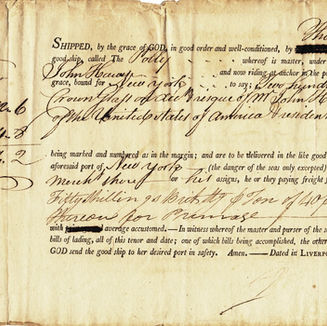 Tho
SHIPPED, by the grace of GOD, in good order and well-conditioned, by
good ship, called The Polly whereof is master, under
John and now riding at anchor in the p
grace, bound for New York to say; Two hund
Crown glass of Mr. John
6 of the United States of America President
3
2
being marked and numbered as in the margin; and are to be delivered in the like good
aforesaid port of New York (the danger of the seas only excepted)
Merch there or his assigns, he or they paying freight
Fifty Shillings P Ton of 40
thereon for Primage
with average accustomed.—In witness whereof the master and purser of the s
bills of lading, all of this tenor and date; one of which bills being accomplished, the other
GOD send the good ship to her desired port in safety. Amen.—Dated in LIVERPO